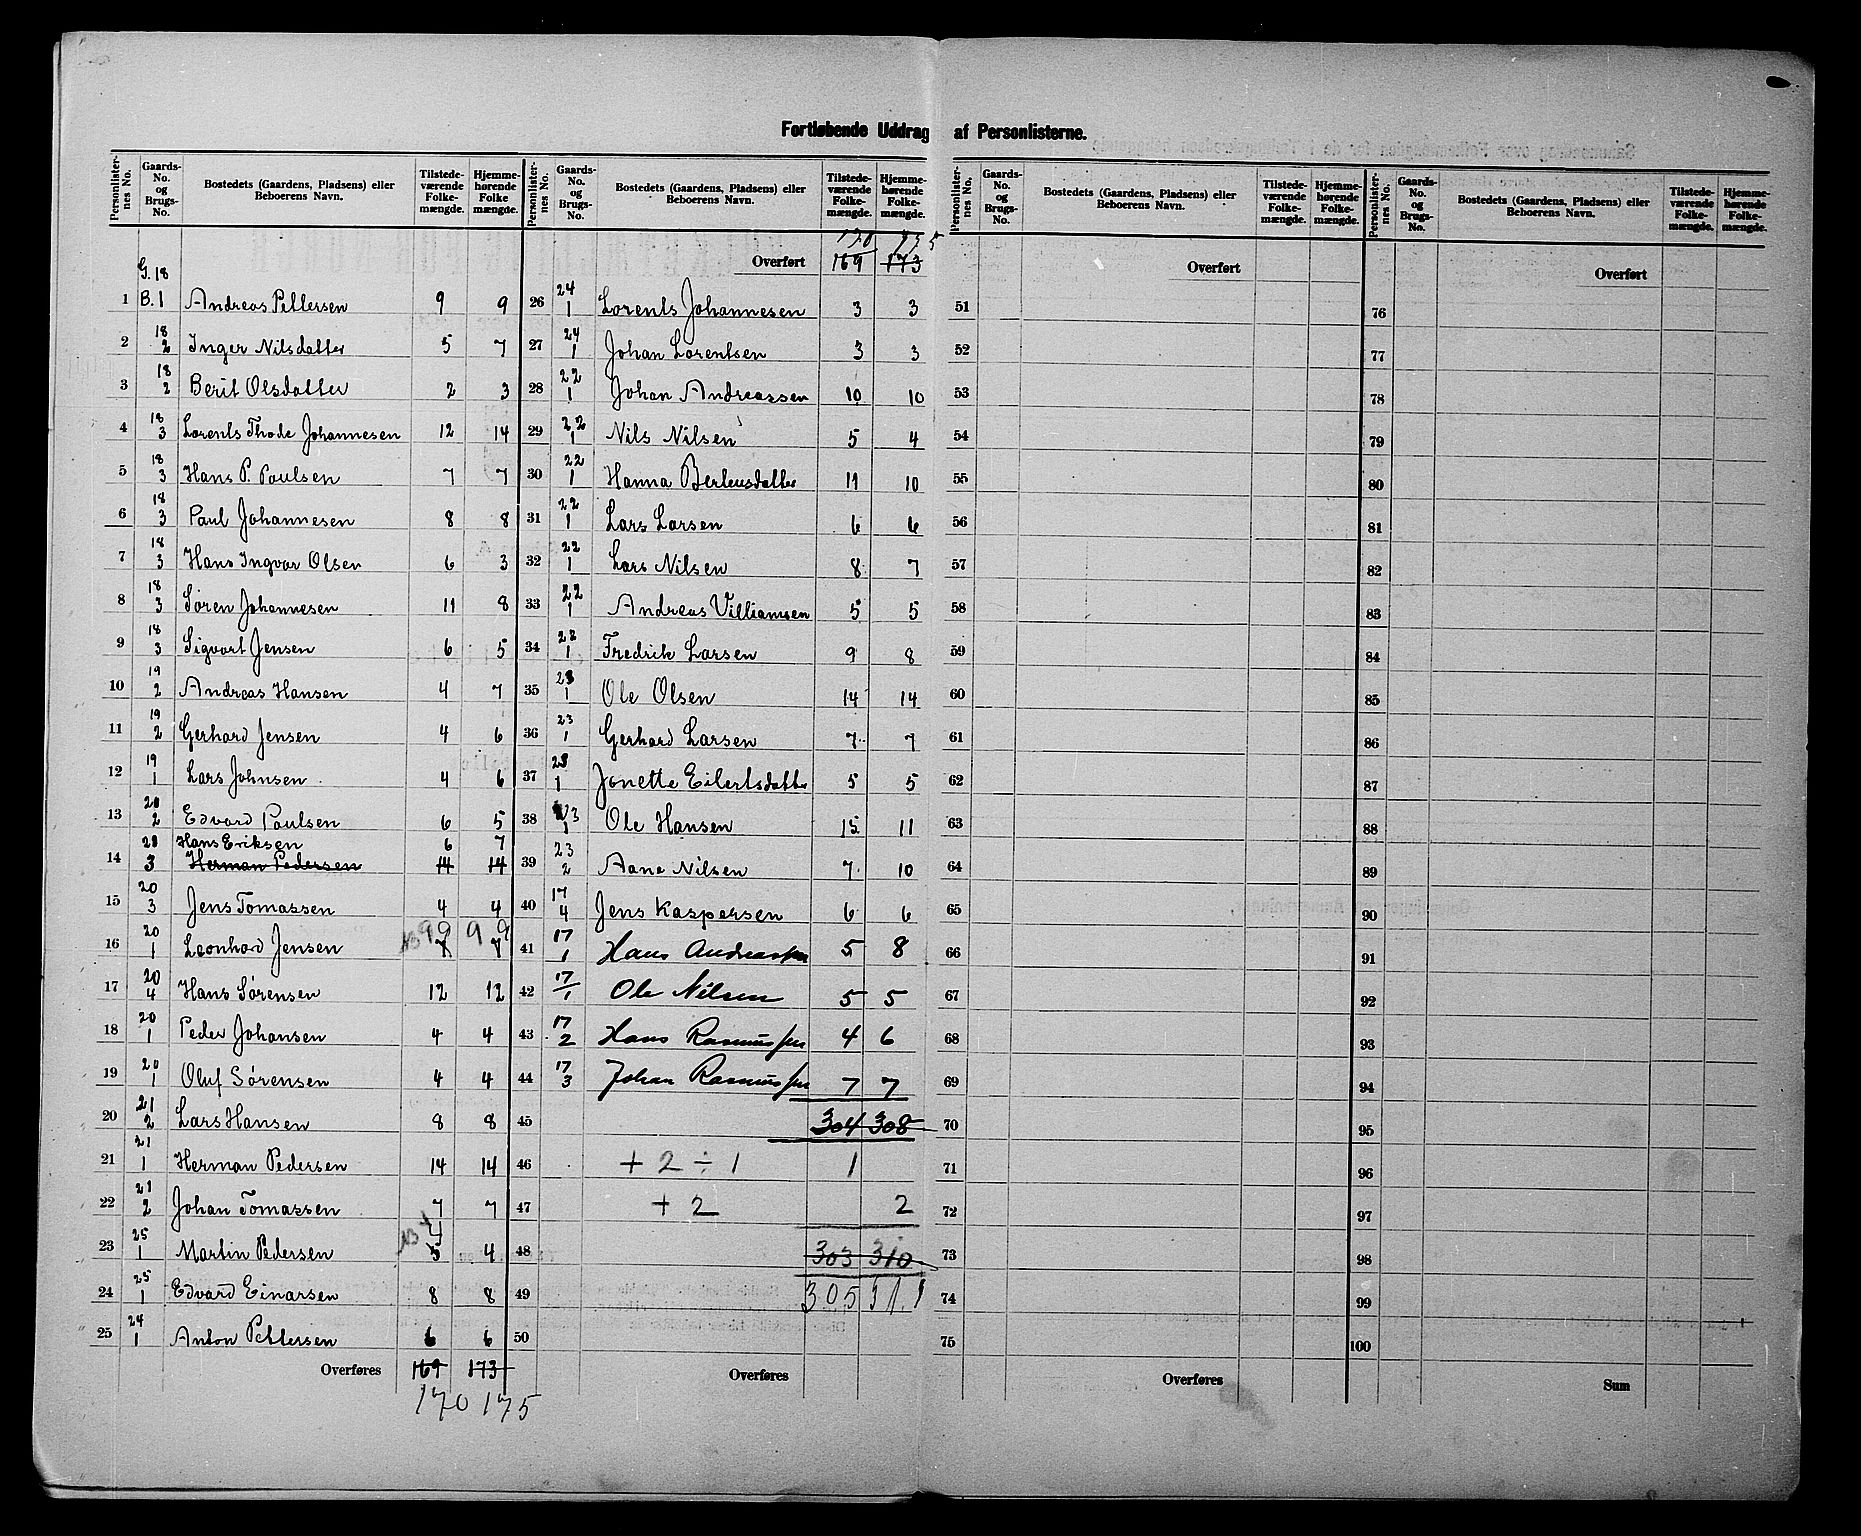 Fortløbende Uddrag af Personlisterne.
Personlisternes No. | Gaards-No. og Brugs-No. | Bostedets (Gaardens, Pladsens) eller Beboerens Navn. | Tilstedeværende Folkemængde. | Hjemmehørende Folkemængde.
1 G. 18 B. 1 Andreas Pettersen 9 9
2 18 2 Inger Nilsdatter 5 7
3 18 2 Berit Olsdatter 2 3
4 18 3 Lorents Thode Johannesen 12 14
5 18 3 Hans P. Paulsen 7 7
6 18 3 Paul Johannesen 8 8
7 18 3 Hans Ingvar Olsen 6 3
8 18 3 Søren Johannesen 11 8
9 18 3 Sigvart Jensen 6 5
10 19 2 Andreas Hansen 4 7
11 19 2 Gerhard Jensen 4 6
12 19 1 Lars Johnsen 4 6
13 20 2 Edvard Paulsen 6 5
Hans Eriksen 6 7
14 20 3 Herman Pedersen 14 14
15 20 3 Jens Tomassen 4 4
16 20 1 Leonhard Jensen 7 7 9 9
17 20 4 Hans Sørensen 12 12
18 20 1 Peder Johansen 4 4
19 20 1 Oluf Sørensen 4 4
20 21 2 Lars Hansen 8 8
21 21 1 Herman Pedersen 14 14
22 21 2 Johan Tomassen 7 7
23 25 1 Martin Pedersen 4 4
24 25 1 Edvard Einarsen 8 8
25 24 1 Anton Pettersen 6 6
Overføres 169 173
170 175
170 175
Overført 169 173
26 24 1 Lorents Johannesen 3 3
27 24 1 Johan Lorentsen 3 3
28 22 1 Johan Andreassen 10 10
29 22 1 Nils Nilsen 5 4
30 22 1 Hanna Berteusdatter 11 10
31 22 1 Lars Larsen 6 6
32 22 1 Lars Nilsen 8 7
33 22 1 Andreas Villiamsen 5 5
34 22 1 Fredrik Larsen 9 8
35 23 1 Ole Olsen 14 14
36 23 1 Gerhard Larsen 7 7
37 23 1 Jonette Eilertsdatter 5 5
38 23 1 Ole Hansen 15 11
39 23 2 Aane Nilsen 7 10
40 17 4 Jens Kaspersen 6 6
41 17 1 Hans Andreassen 5 8
42 17 1 Ole Nilsen 5 5
43 17 2 Hans Rasmussen 4 6
44 17 3 Johan Rasmussen 7 7
45 304 308
46 + 2 ÷ 1 1
47 + 2 2
48 303 310
49 305 311
50
Overføres
Overført
51
52
53
54
55
56
57
58
59
60
61
62
63
64
65
66
67
68
69
70
71
72
73
74
75
Overføres
Overført
76
77
78
79
80
81
82
83
84
85
86
87
88
89
90
91
92
93
94
95
96
97
98
99
100
Sum